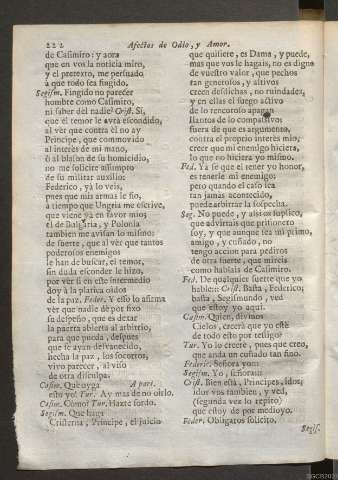 222 Afectos de Odio, y Amor.
de Casimiro: y aora
que en vos la noticia miro,
y el pretexto, me persuado
a que todo sea fingido.
Segism. Fingido no parecer
hombre como Casimiro,
ni saber del nadie? Crist. Si,
que el temor le avrà escondido,
al vèr que contra èl no ay
Principe, que commovido
al interès de mi mano,
ò al blason de su homicidio,
no me solicite assumpto
de su militar auxilio:
Federico, yà lo veis,
pues que mis armas le fio,
a tiempo que Ungria me escrive,
que viene yà en favor mio;
el de Bulgaria, y Polonia
tambien me avisan lo mismo:
de suerte, que al vèr que tantos
poderosos enemigos
le han de buscar, el temor,
sin duda esconder le hizo,
por vèr si en este intermedio
doy à la platica oidos
de la paz. Feder. Y esso lo afirma
vèr que nadie dè por fixo
su despeño, que es dexar
la puerta abierta al arbitrio,
para que pueda, despues
que se ayan desvanecido,
hecha la paz, los socorros,
vivo parecer, al viso
de otra disculpa.
Casim. Que oyga A part.
esto yo! Tur. Ay mas de no oirlo.
Casim. Como? Tur. Hazte sordo.
Segism. Que haga
Cristerna, Principe, el juicio
que quisiere, es Dama, y puede,
mas que vos le hagais, no es digno
de vuestro valor, que pechos
tan generosos, y altivos
creen desdichas, no ruindades,
y en ellas el fuego activo
de lo rencoroso apagan
llantos de lo compassivo;
fuera de que es argumento,
contra el proprio interès mio,
creer que mi enemigo hiciera,
lo que no hiciera yo mismo.
Fed. Yà se que el tener yo honor,
es tenerle mi enemigo;
pero quando el caso sea
tan jamàs acontecido,
puede arbitrar la sospecha.
Seg. No puede, y assi os suplico,
que advirtais que prisionero
soy, y que aunque sea mi primo,
amigo, y cuñado, no
tengo accion para pediros
de otra suerte, que mireis
como hablais de Casimiro.
Fed. De qualquier suerte que yo
hable:: Crist. Basta, Federico;
basta, Segismundo, ved
que estoy yo aqui.
Casim. Quien, divinos
Cielos, creerà que yo estè
de todo esto por testigo?
Tur. Yo lo creerè, pues que creo,
que anda un cuñado tan fino.
Federic. Señora yo::
Segism. Yo, señora::
Crist. Bien està, Principes, idos;
idos vos tambien, y ved,
(segunda vez lo repito)
que estoy de por medio yo.
Feder. Obligaros solicito.
Segis.
GCB202